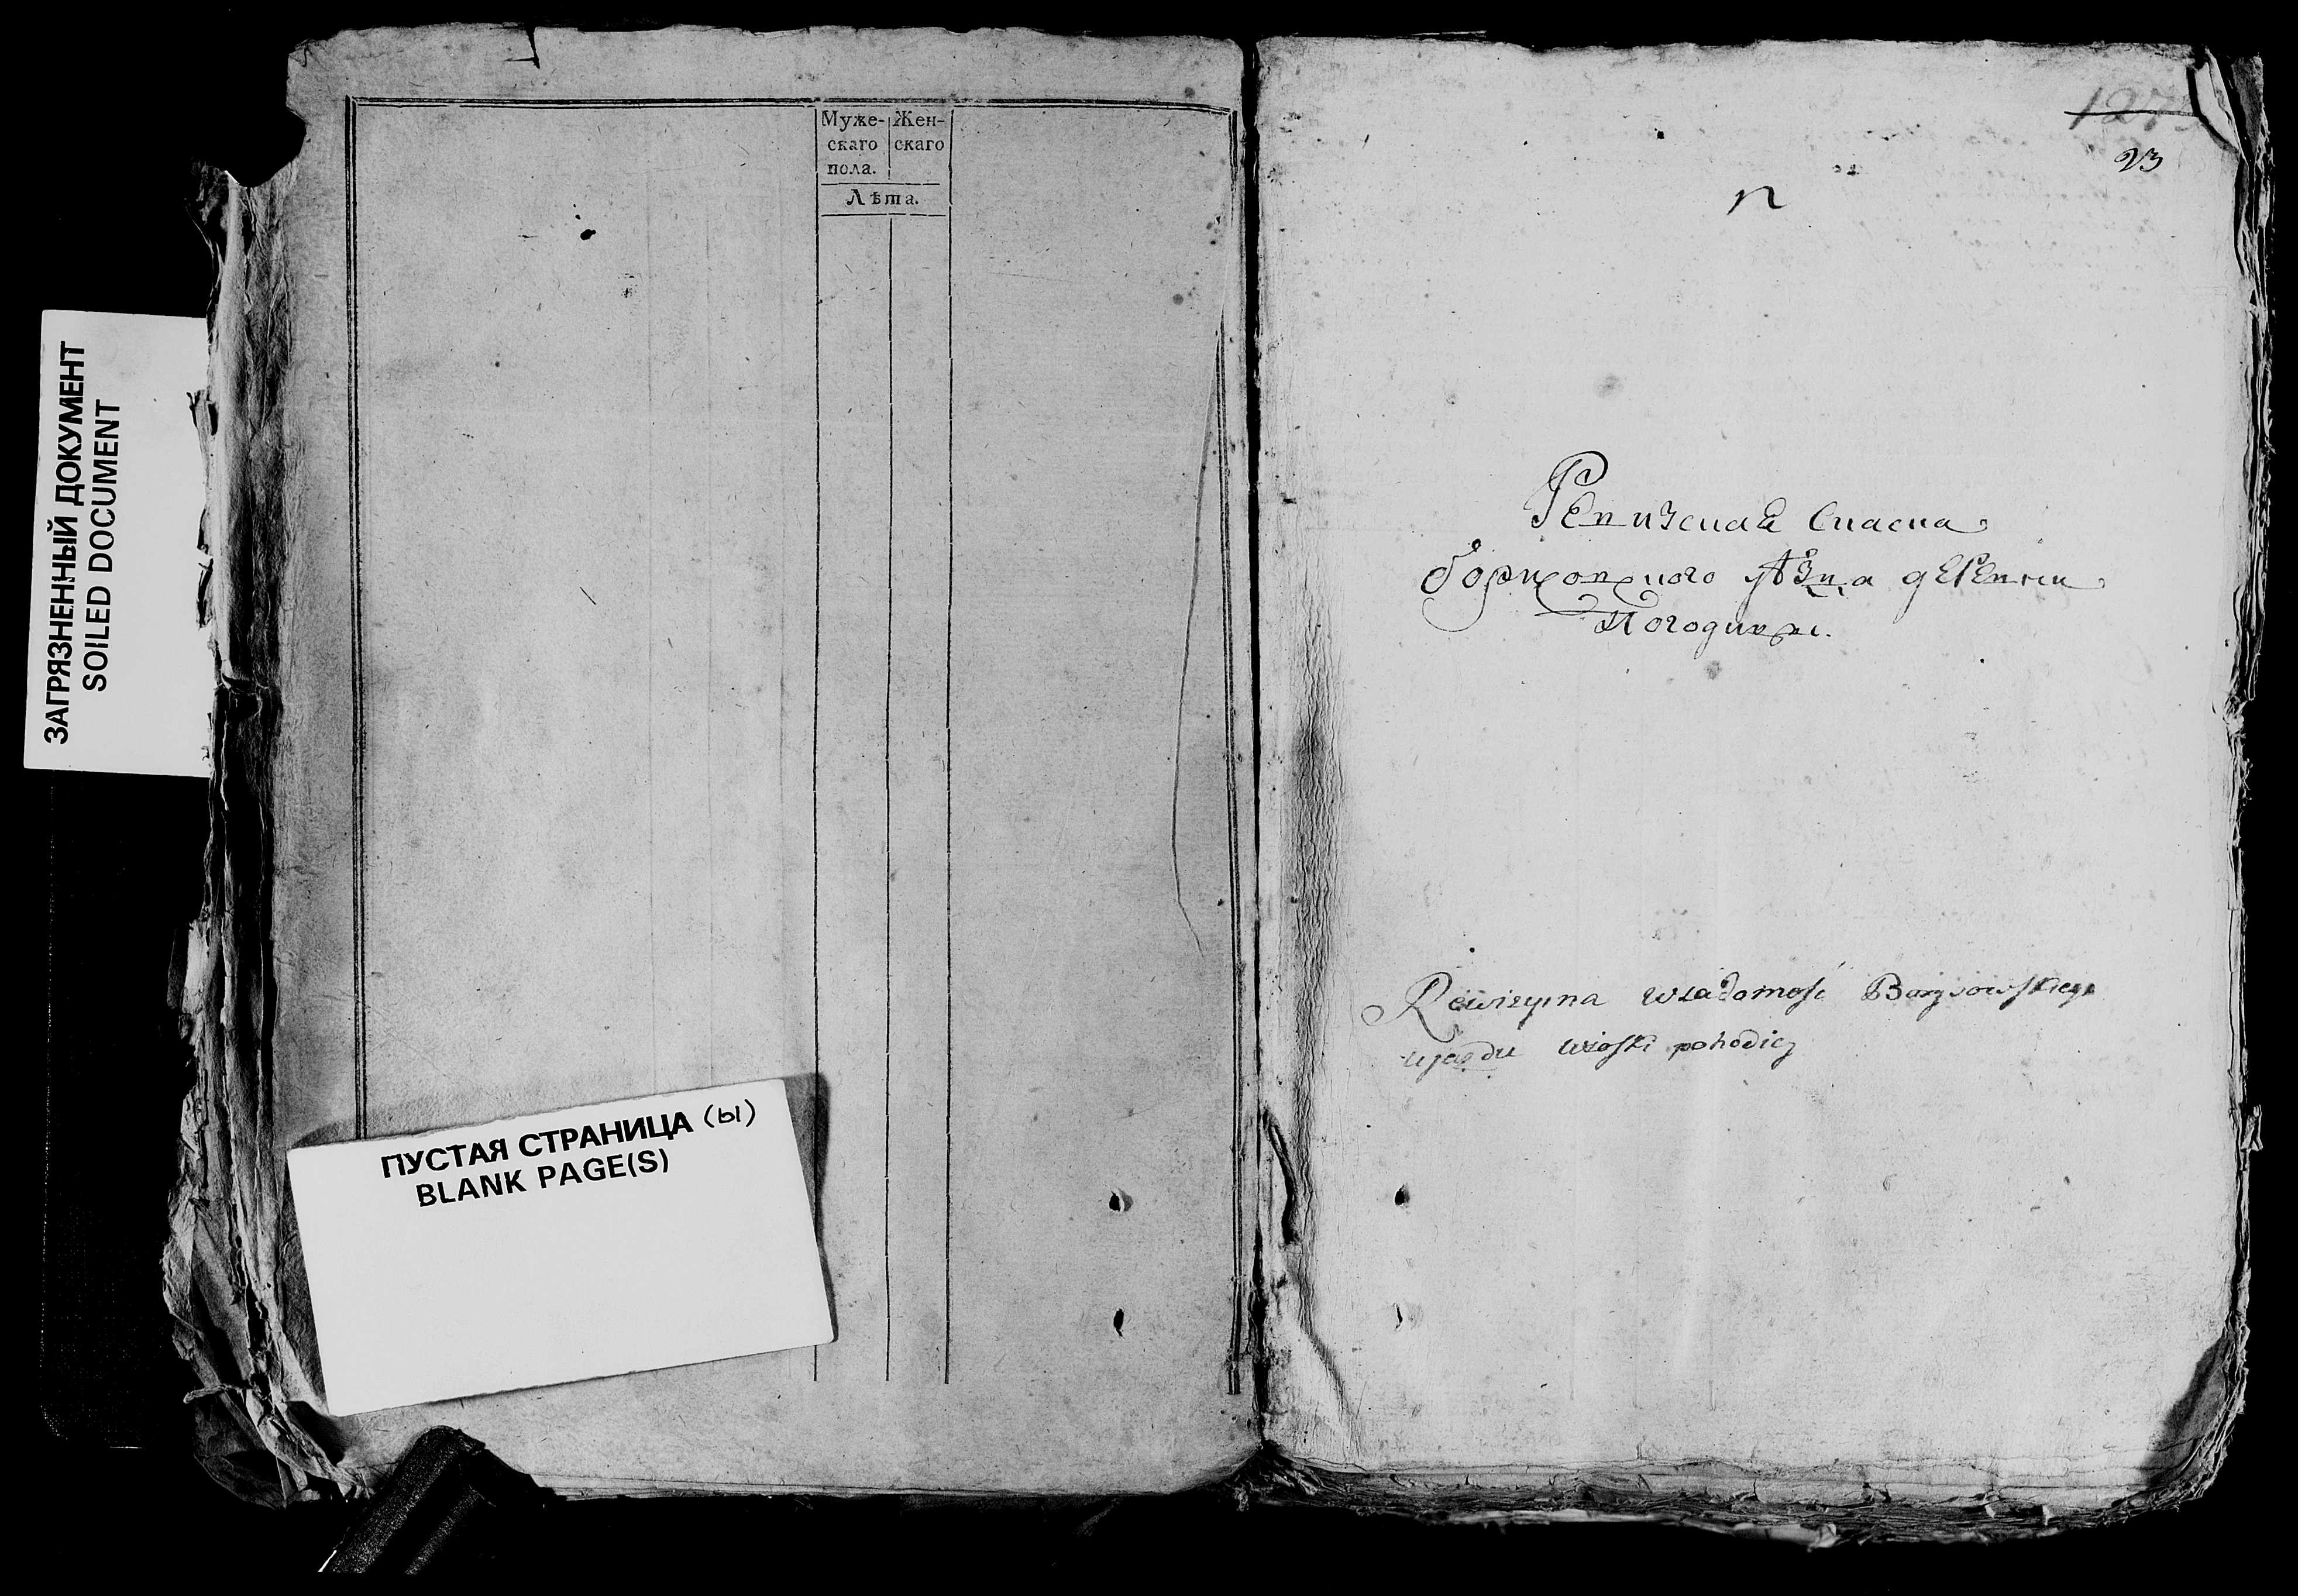 ЗАГРЯЗНЕННЫЙ ДОКУМЕНТ
SOILED DOCUMENT
Муже-
скаго
пола.
Жен-
скаго
Лѣта.
ПУСТАЯ СТРАНИЦА (ы)
BLANK PAGE(S)
23
п
Ревизская сказка
борисовского уѣзда деревни
Погодицы.
Rewizyina wiadomość Borysowskiego
ujazdu wioski pohodicy